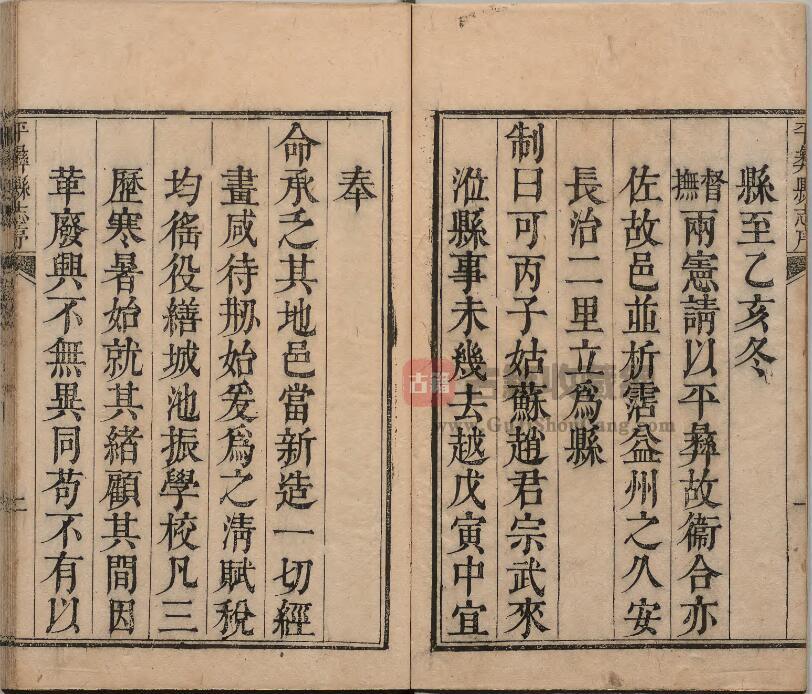 縣至乙亥冬
督撫兩憲請以平彝故衞合亦
佐故邑並析霑益州之久安
長治二里立爲縣
制曰可丙子姑蘇趙君宗武來
涖縣事未幾去越戊寅中宜
奉
命承乏其地邑當新造一切經
畫咸待刱始爰爲之淸賦稅
均徭役繕城池振學校凡三
歷寒暑始就其緒顧其間因
革廢興不無異同苟不有以
平彝縣志序
二
平彝縣志序
一
古籍
www.GujiShouCang.com